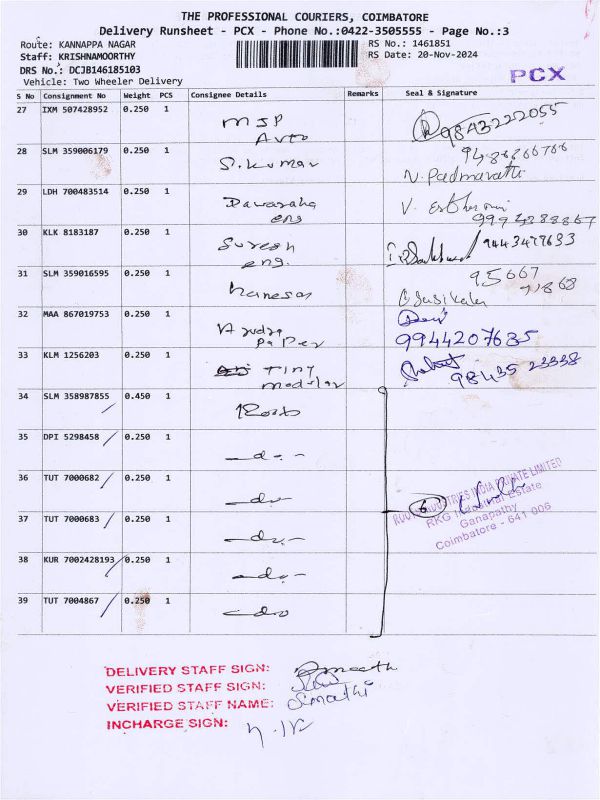 THE PROFESSIONAL COURIERS, COIMBATORE
Delivery Runsheet - PCX - Phone No.:0422-3505555 - Page No.:3
Route: KANNAPPA NAGAR
RS No.: 1461851
Staff: KRISHNAMOORTHY
RS Date: 20-Nov-2024
DRS No.: DCJB146185103
Vehicle: Two Wheeler Delivery
PCX
S No Consignment No Weight PCS Consignee Details Remarks Seal & Signature
27 IXM 507428952 0.250 1 MSP
Auto 9843222055
28 SLM 359006179 0.250 1 S.kumar
N. Padmavathi
29 LDH 700483514 0.250 1
eng V.
30 KLK 8183187 0.250 1 Suresh
eng. 9443477633
31 SLM 359016595 0.250 1 95667
71868
Susikala
32 MAA 867019753 0.250 1
Paper 9944207635
33 KLM 1256203 0.250 1 Tiny
modular 98435 23338
34 SLM 358987855 0.450 1 Roots
35 DPI 5298458 0.250 1 -do-
36 TUT 7000682 0.250 1 -do-
37 TUT 7000683 0.250 1 -do-
6
ROOTS INDUSTRIES INDIA PRIVATE LIMITED
RKG Industrial Estate
Ganapathy
Coimbatore - 641 006
38 KUR 7002428193 0.250 1 -do-
39 TUT 7004867 0.250 1 -do-
DELIVERY STAFF SIGN:
VERIFIED STAFF SIGN:
VERIFIED STAFF NAME:
INCHARGE SIGN: